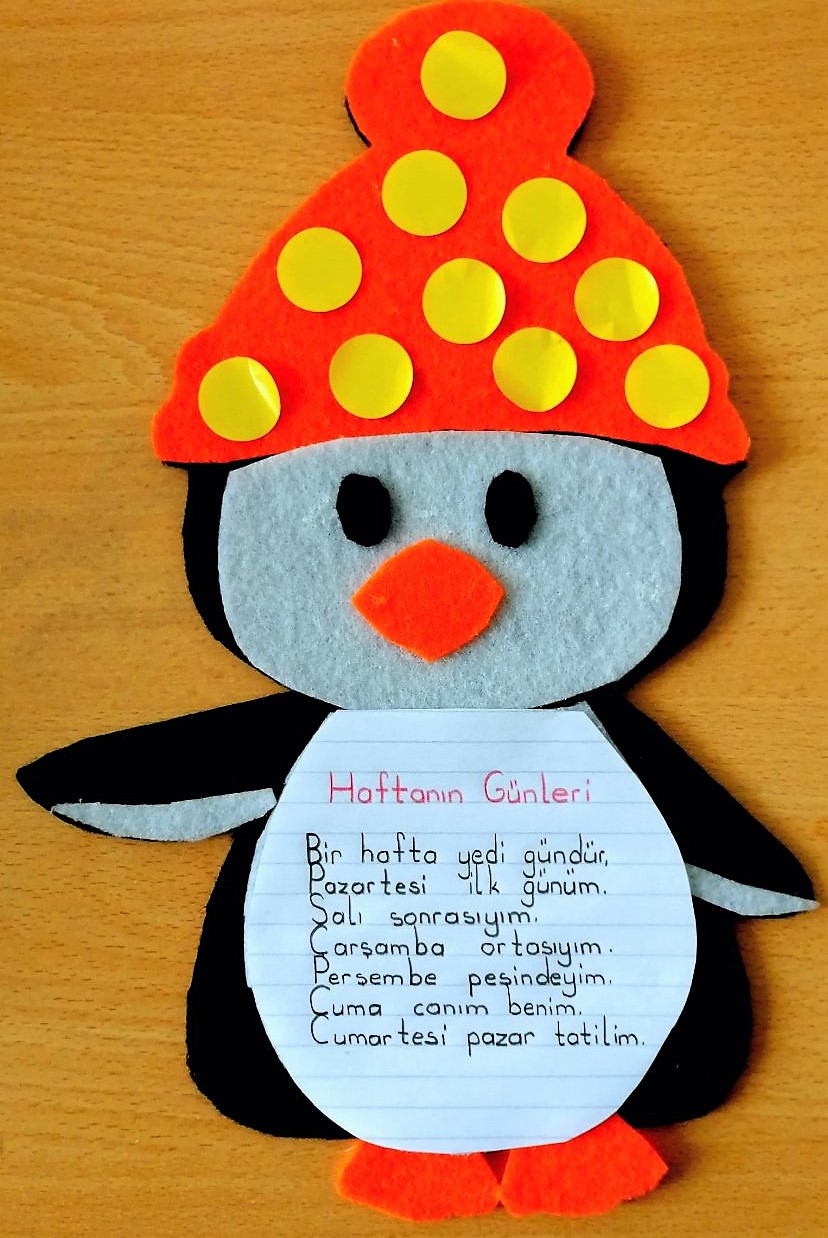 Haftanın Günleri
Bir hafta yedi gündür,
Pazartesi ilk günüm.
Salı sonrasıyım.
Çarşamba ortasıyım.
Perşembe peşindeyim.
Cuma canım benim.
Cumartesi pazar tatilim.